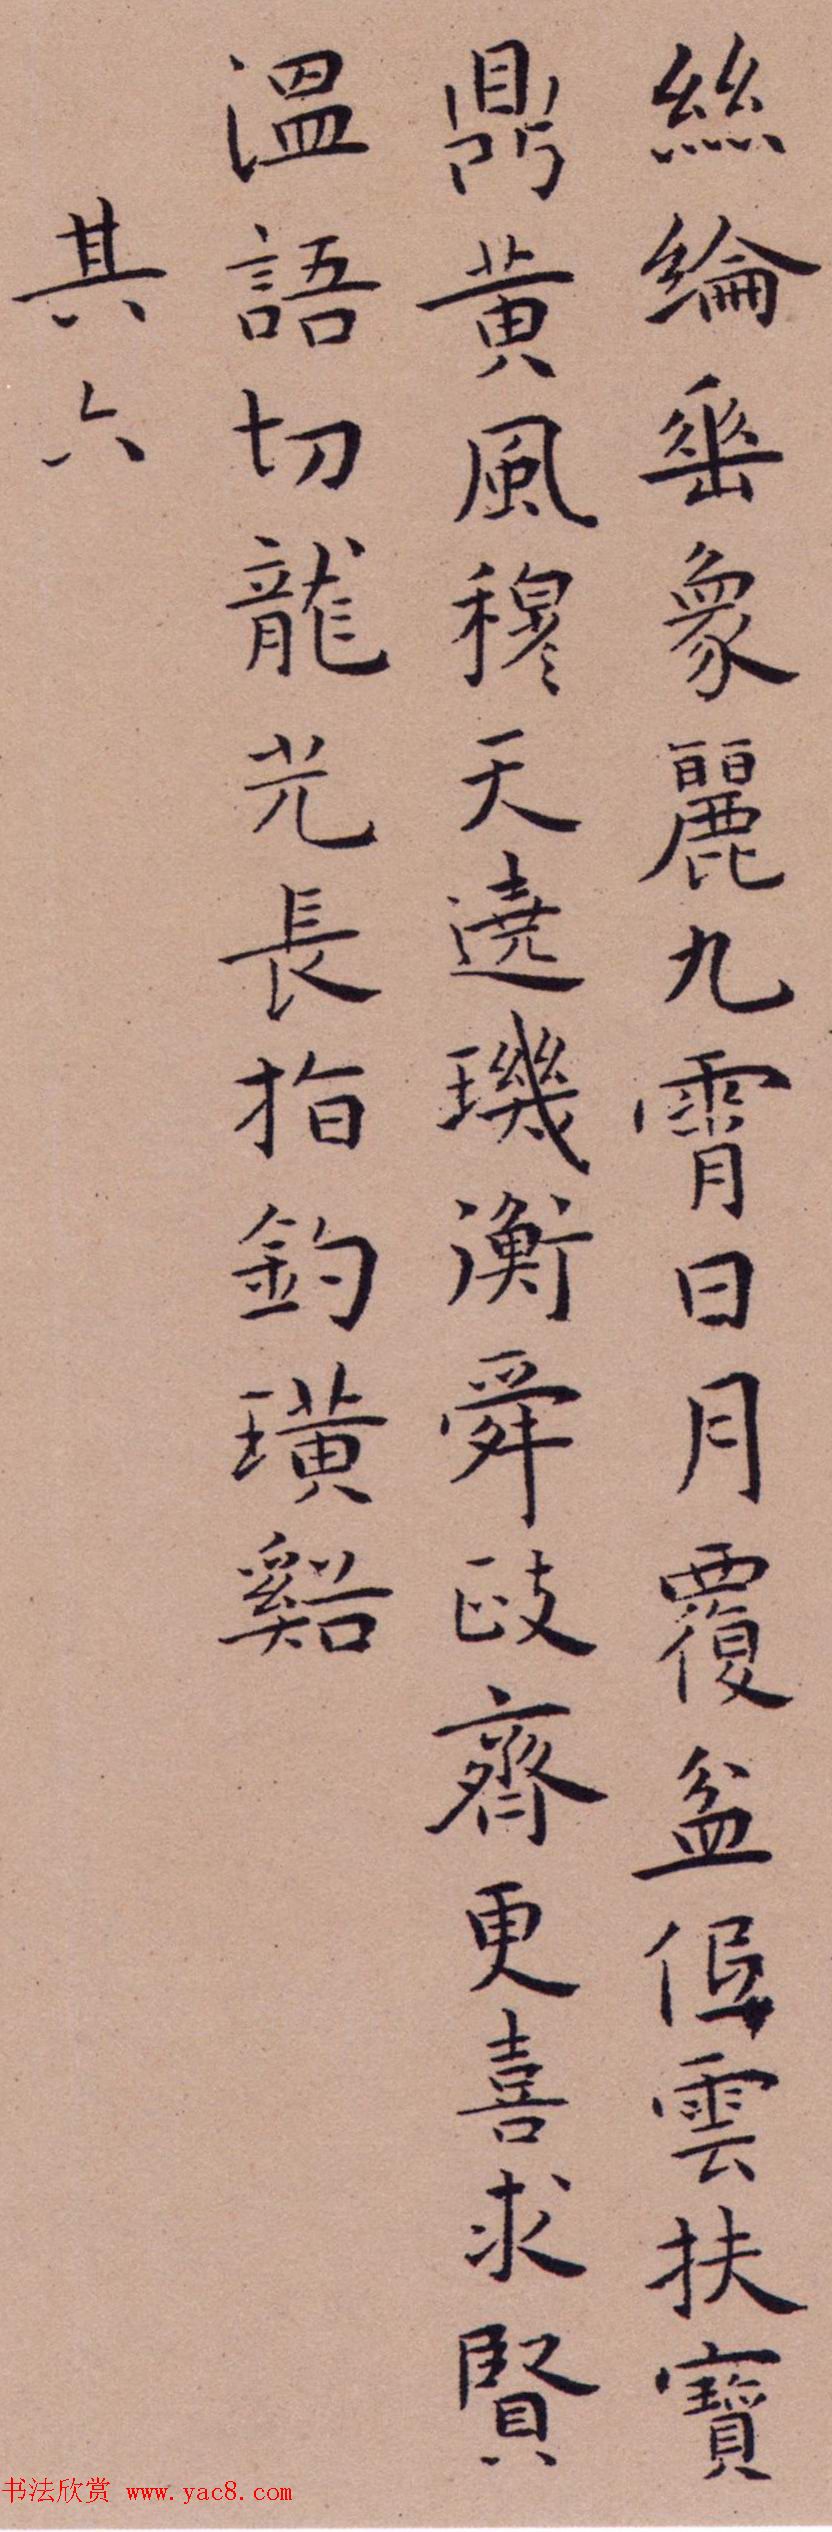 絲綸垂象麗九霄日月覆盆低雲扶寶
鼎黄風穆天遶璣衡舜政齊更喜求賢
溫語切龍光長指釣璜谿
其六
书法欣赏 www.yac8.com